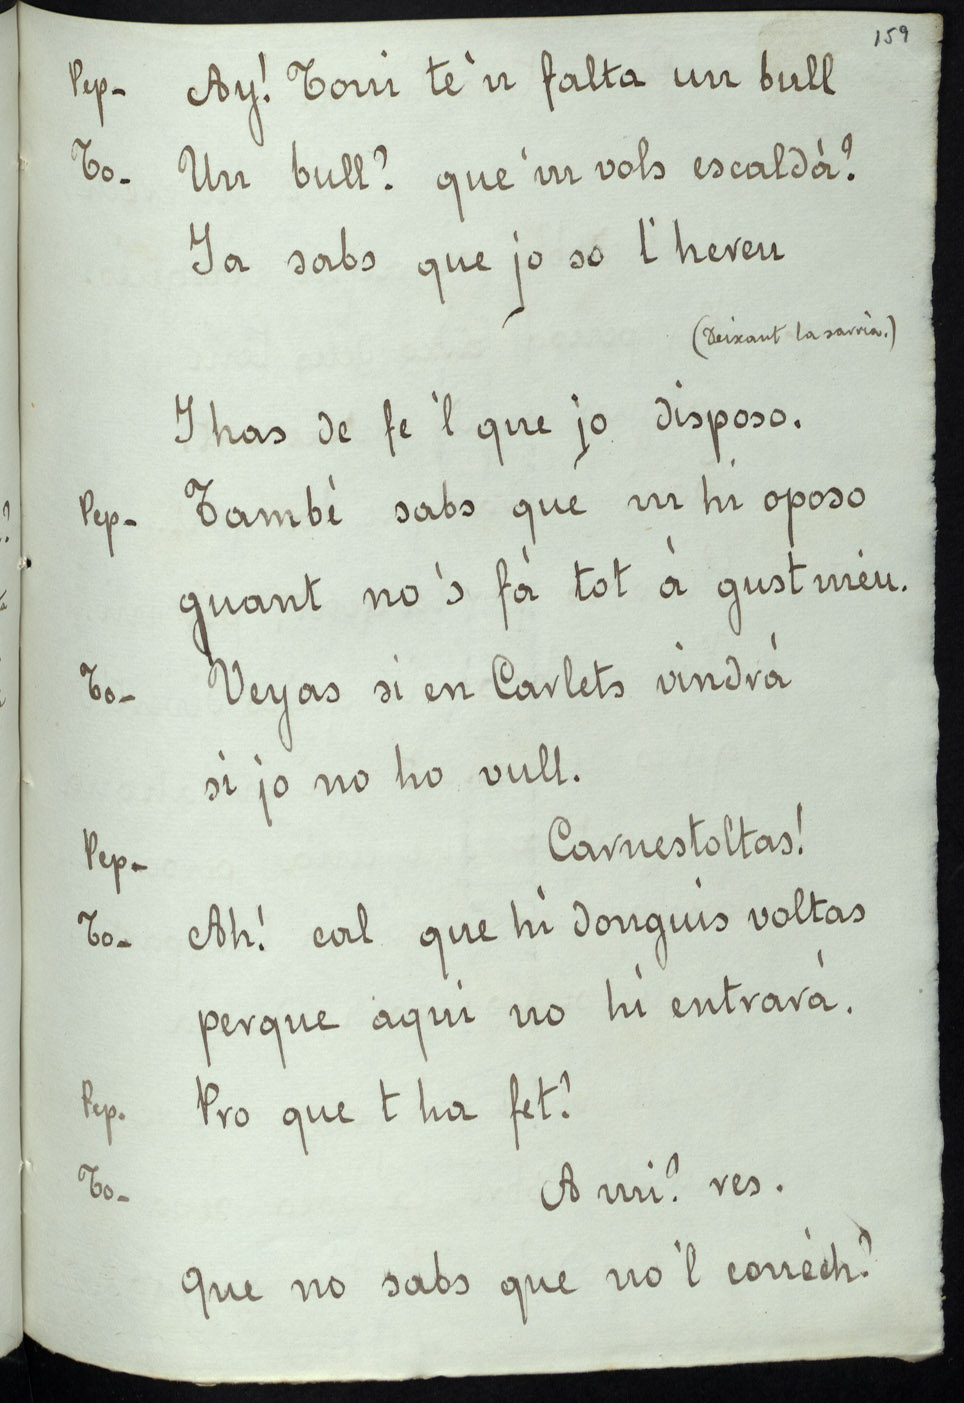 159
Pep- Ay! Toni te'n falta un bull
To- Un bull? que'm vols escaldá?
Ja sabs que jo so l'hereu
(Deixant la sarria.)
I has de fe'l que jo disposo.
Pep- També sabs que m hi oposo
quant no's fá tot á gust méu.
To- Veyas si en Carlets vindrá
si jo no ho vull.
Pep- Carnestoltas!
To- Ah! cal que hi donguis voltas
perque aqui no hi entrará.
Pep. Pro que t ha fet?
To- A mi? res.
que no sabs que no'l conéch?